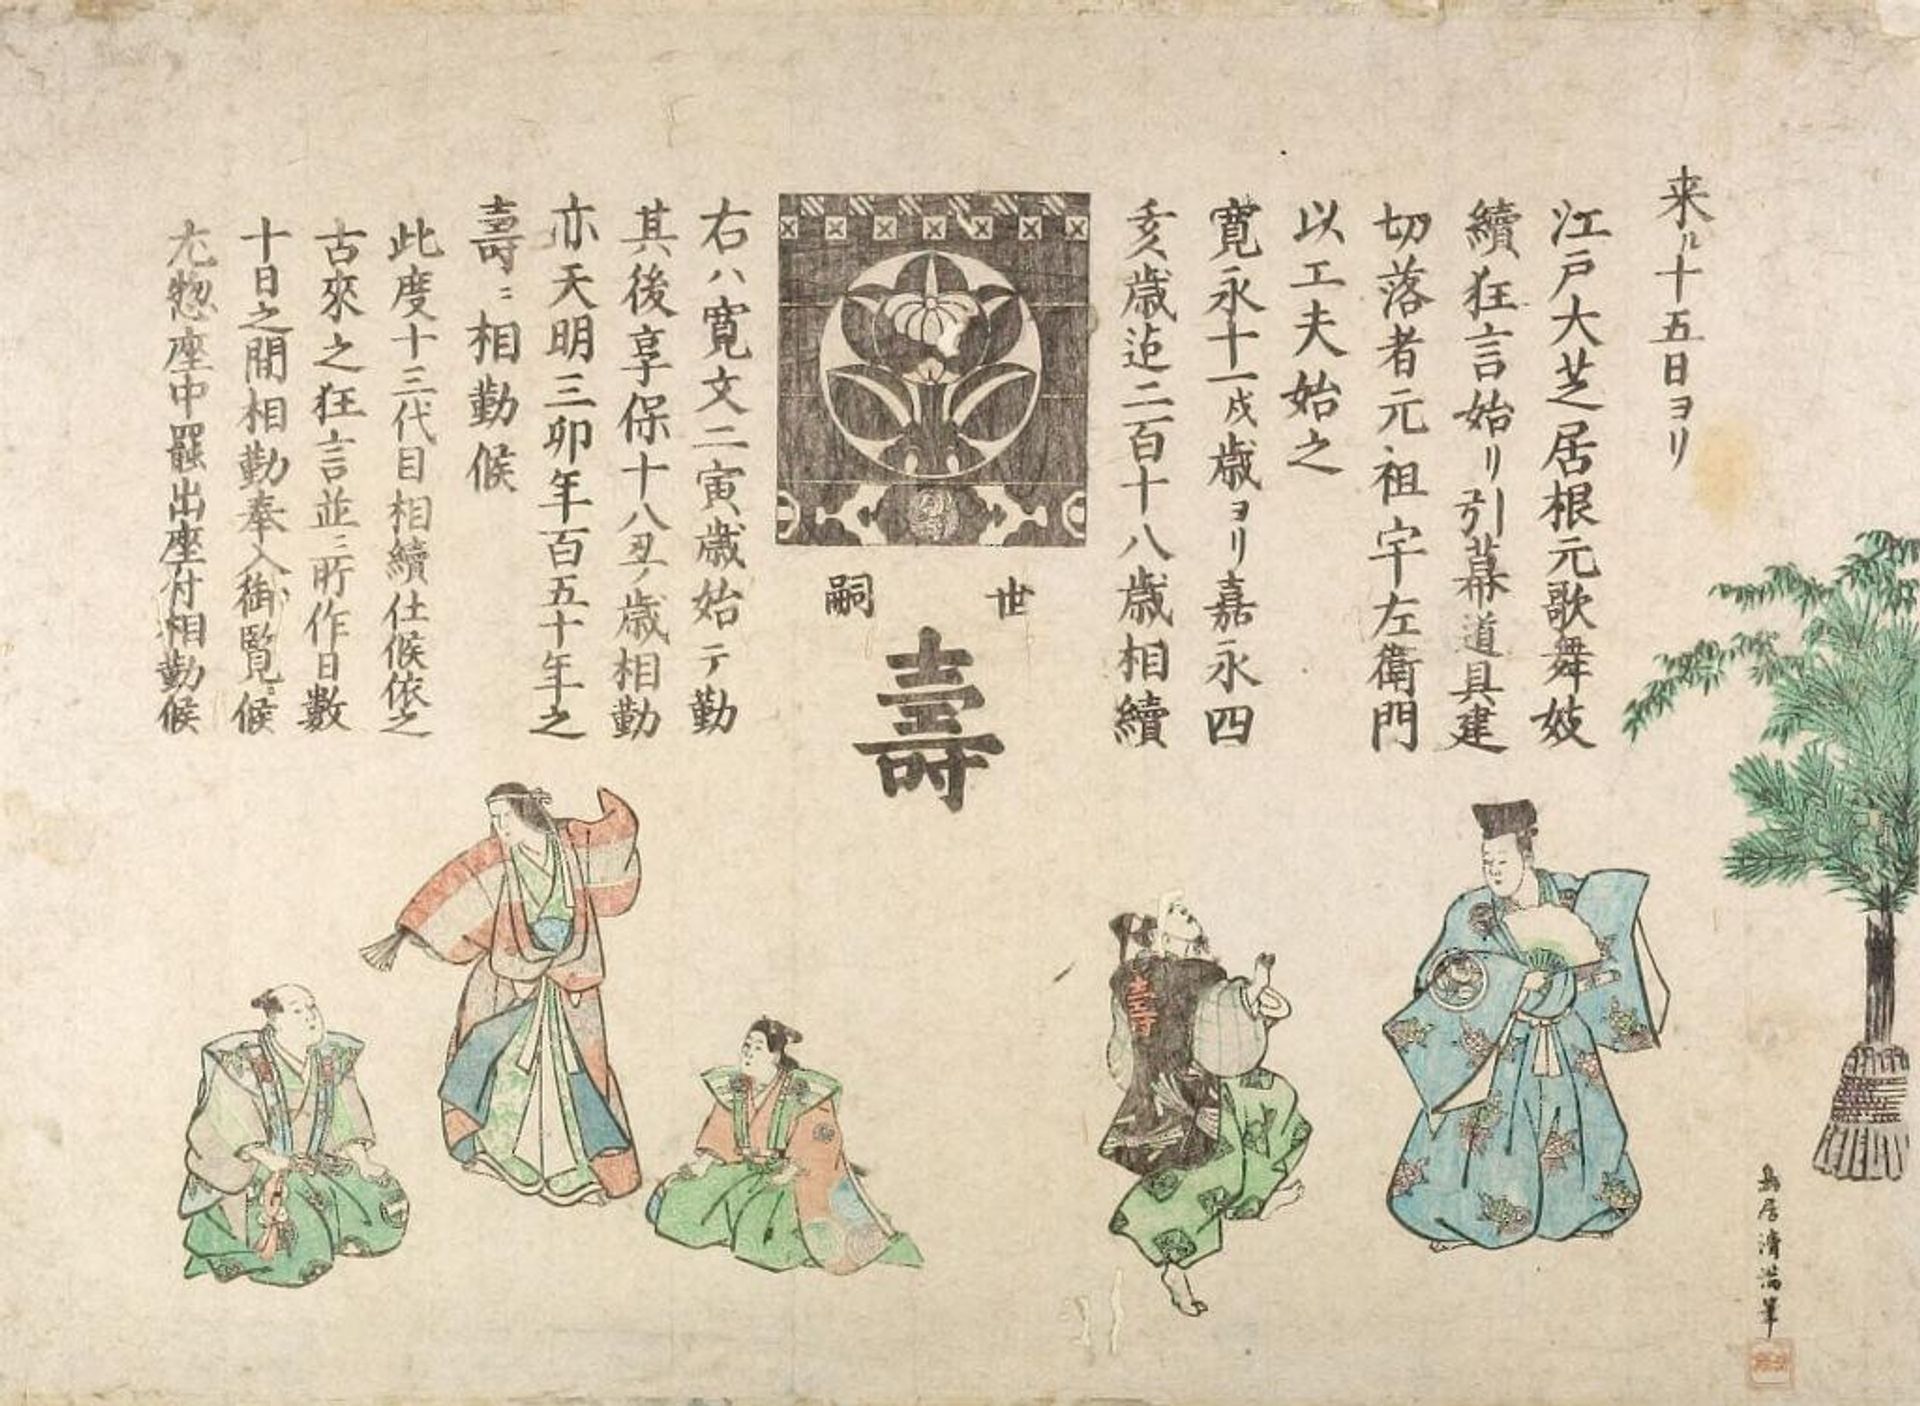 来ル十五日ヨリ
江戸大芝居根元歌舞妓
續狂言始リ引幕道具建
切落者元祖宇左衛門
以工夫始之
寛永十一戌歳ヨリ嘉永四
亥歳迄二百十八歳相續
世嗣
壽
右ハ寛文二寅歳始テ勤
其後享保十八丑ノ歳相勤
亦天明三卯年百五十年之
壽ニ相勤候
此度十三代目相續仕候依之
古來之狂言並ニ所作日數
十日之間相勤奉入御覧候
尤惣座中罷出座付相勤候
壽
鳥居清満筆